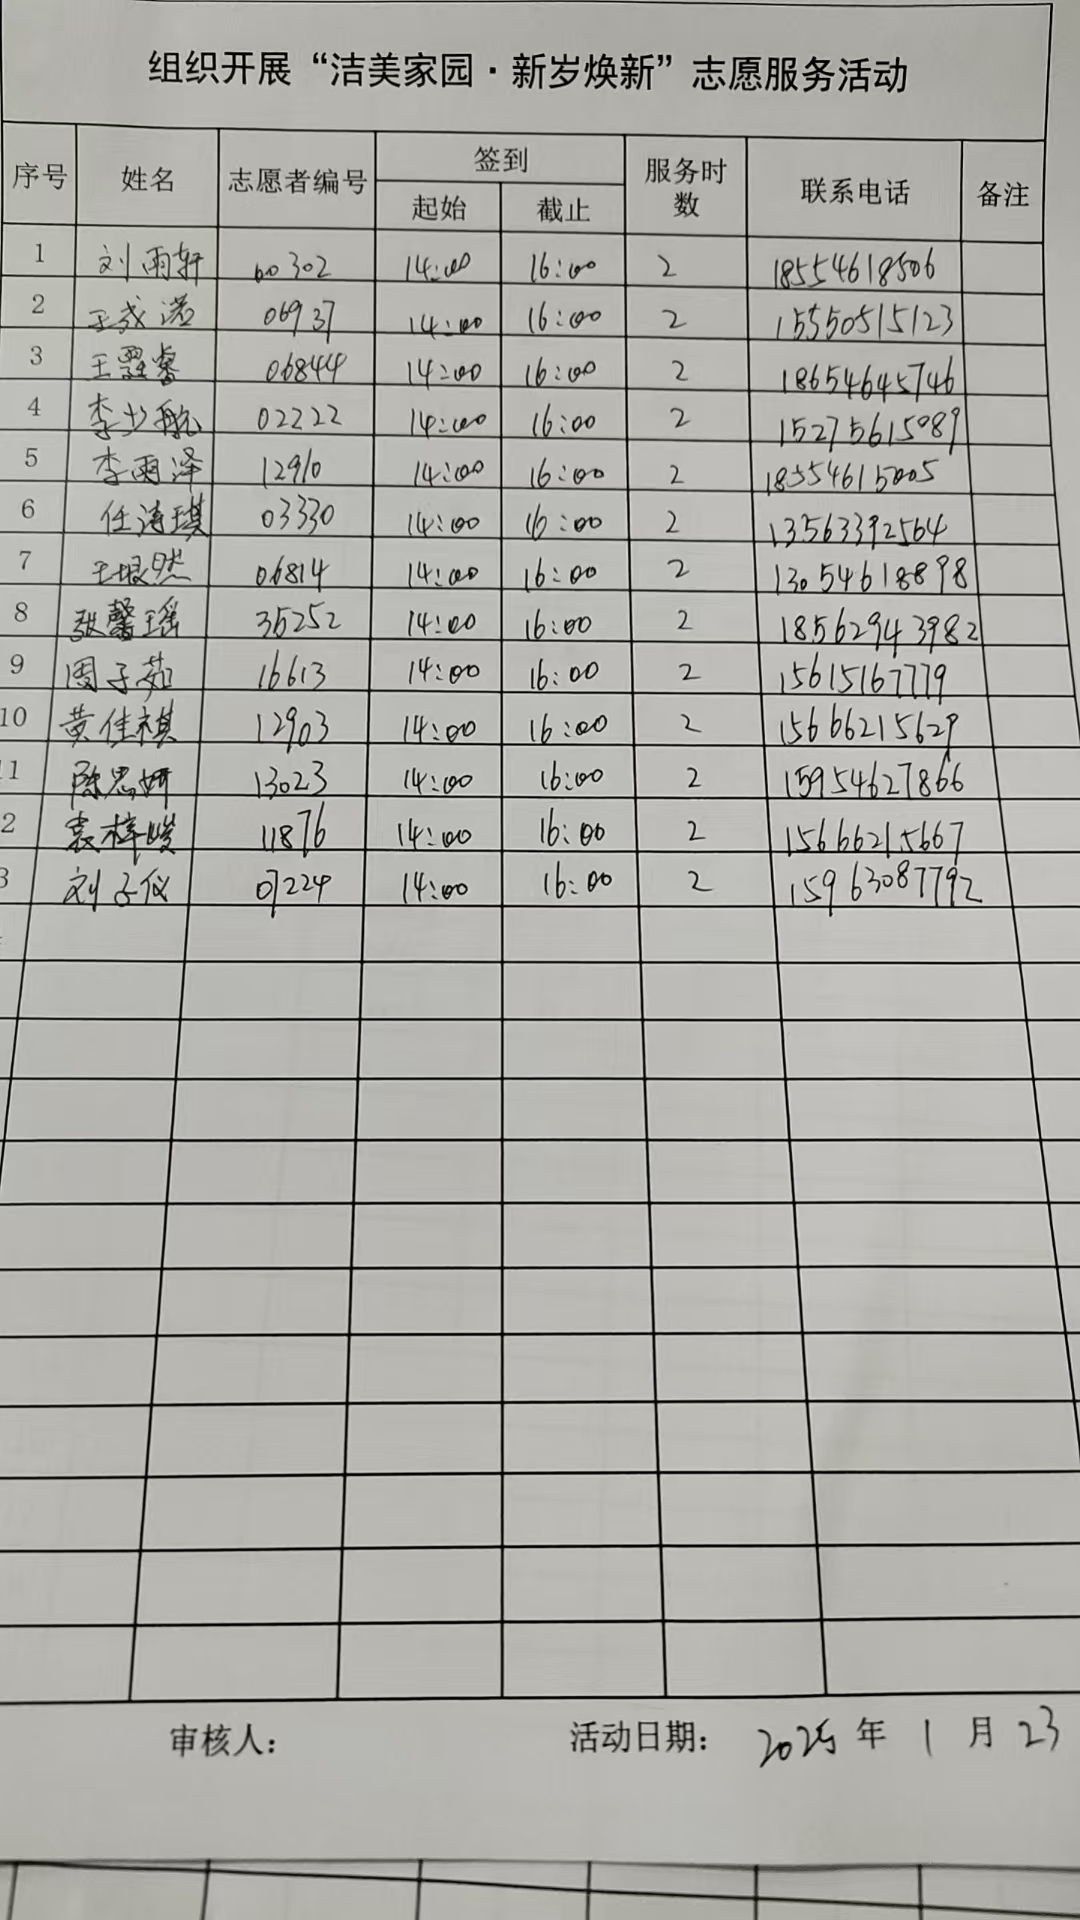 组织开展“洁美家园·新岁焕新”志愿服务活动
序号 姓名 志愿者编号 签到 服务时数 联系电话 备注
起始 截止
1 刘雨轩 00302 14:00 16:00 2 18554618506
2 王成诺 06937 14:00 16:00 2 15550515123
3 王睿 06844 14:00 16:00 2 18654645746
4 李少航 02222 14:00 16:00 2 15275615089
5 李雨泽 12910 14:00 16:00 2 18554615005
6 任涛琪 03330 14:00 16:00 2 13563392564
7 王然 06814 14:00 16:00 2 13054618898
8 张馨瑶 36252 14:00 16:00 2 18562943982
9 周子茹 16613 14:00 16:00 2 15615167779
10 黄佳祺 12903 14:00 16:00 2 15666215629
11 陈思妍 13023 14:00 16:00 2 15954627866
2 袁梓峻 11876 14:00 16:00 2 15666215667
3 刘子仪 07224 14:00 16:00 2 15963087792
审核人： 活动日期： 2025 年 1 月 23